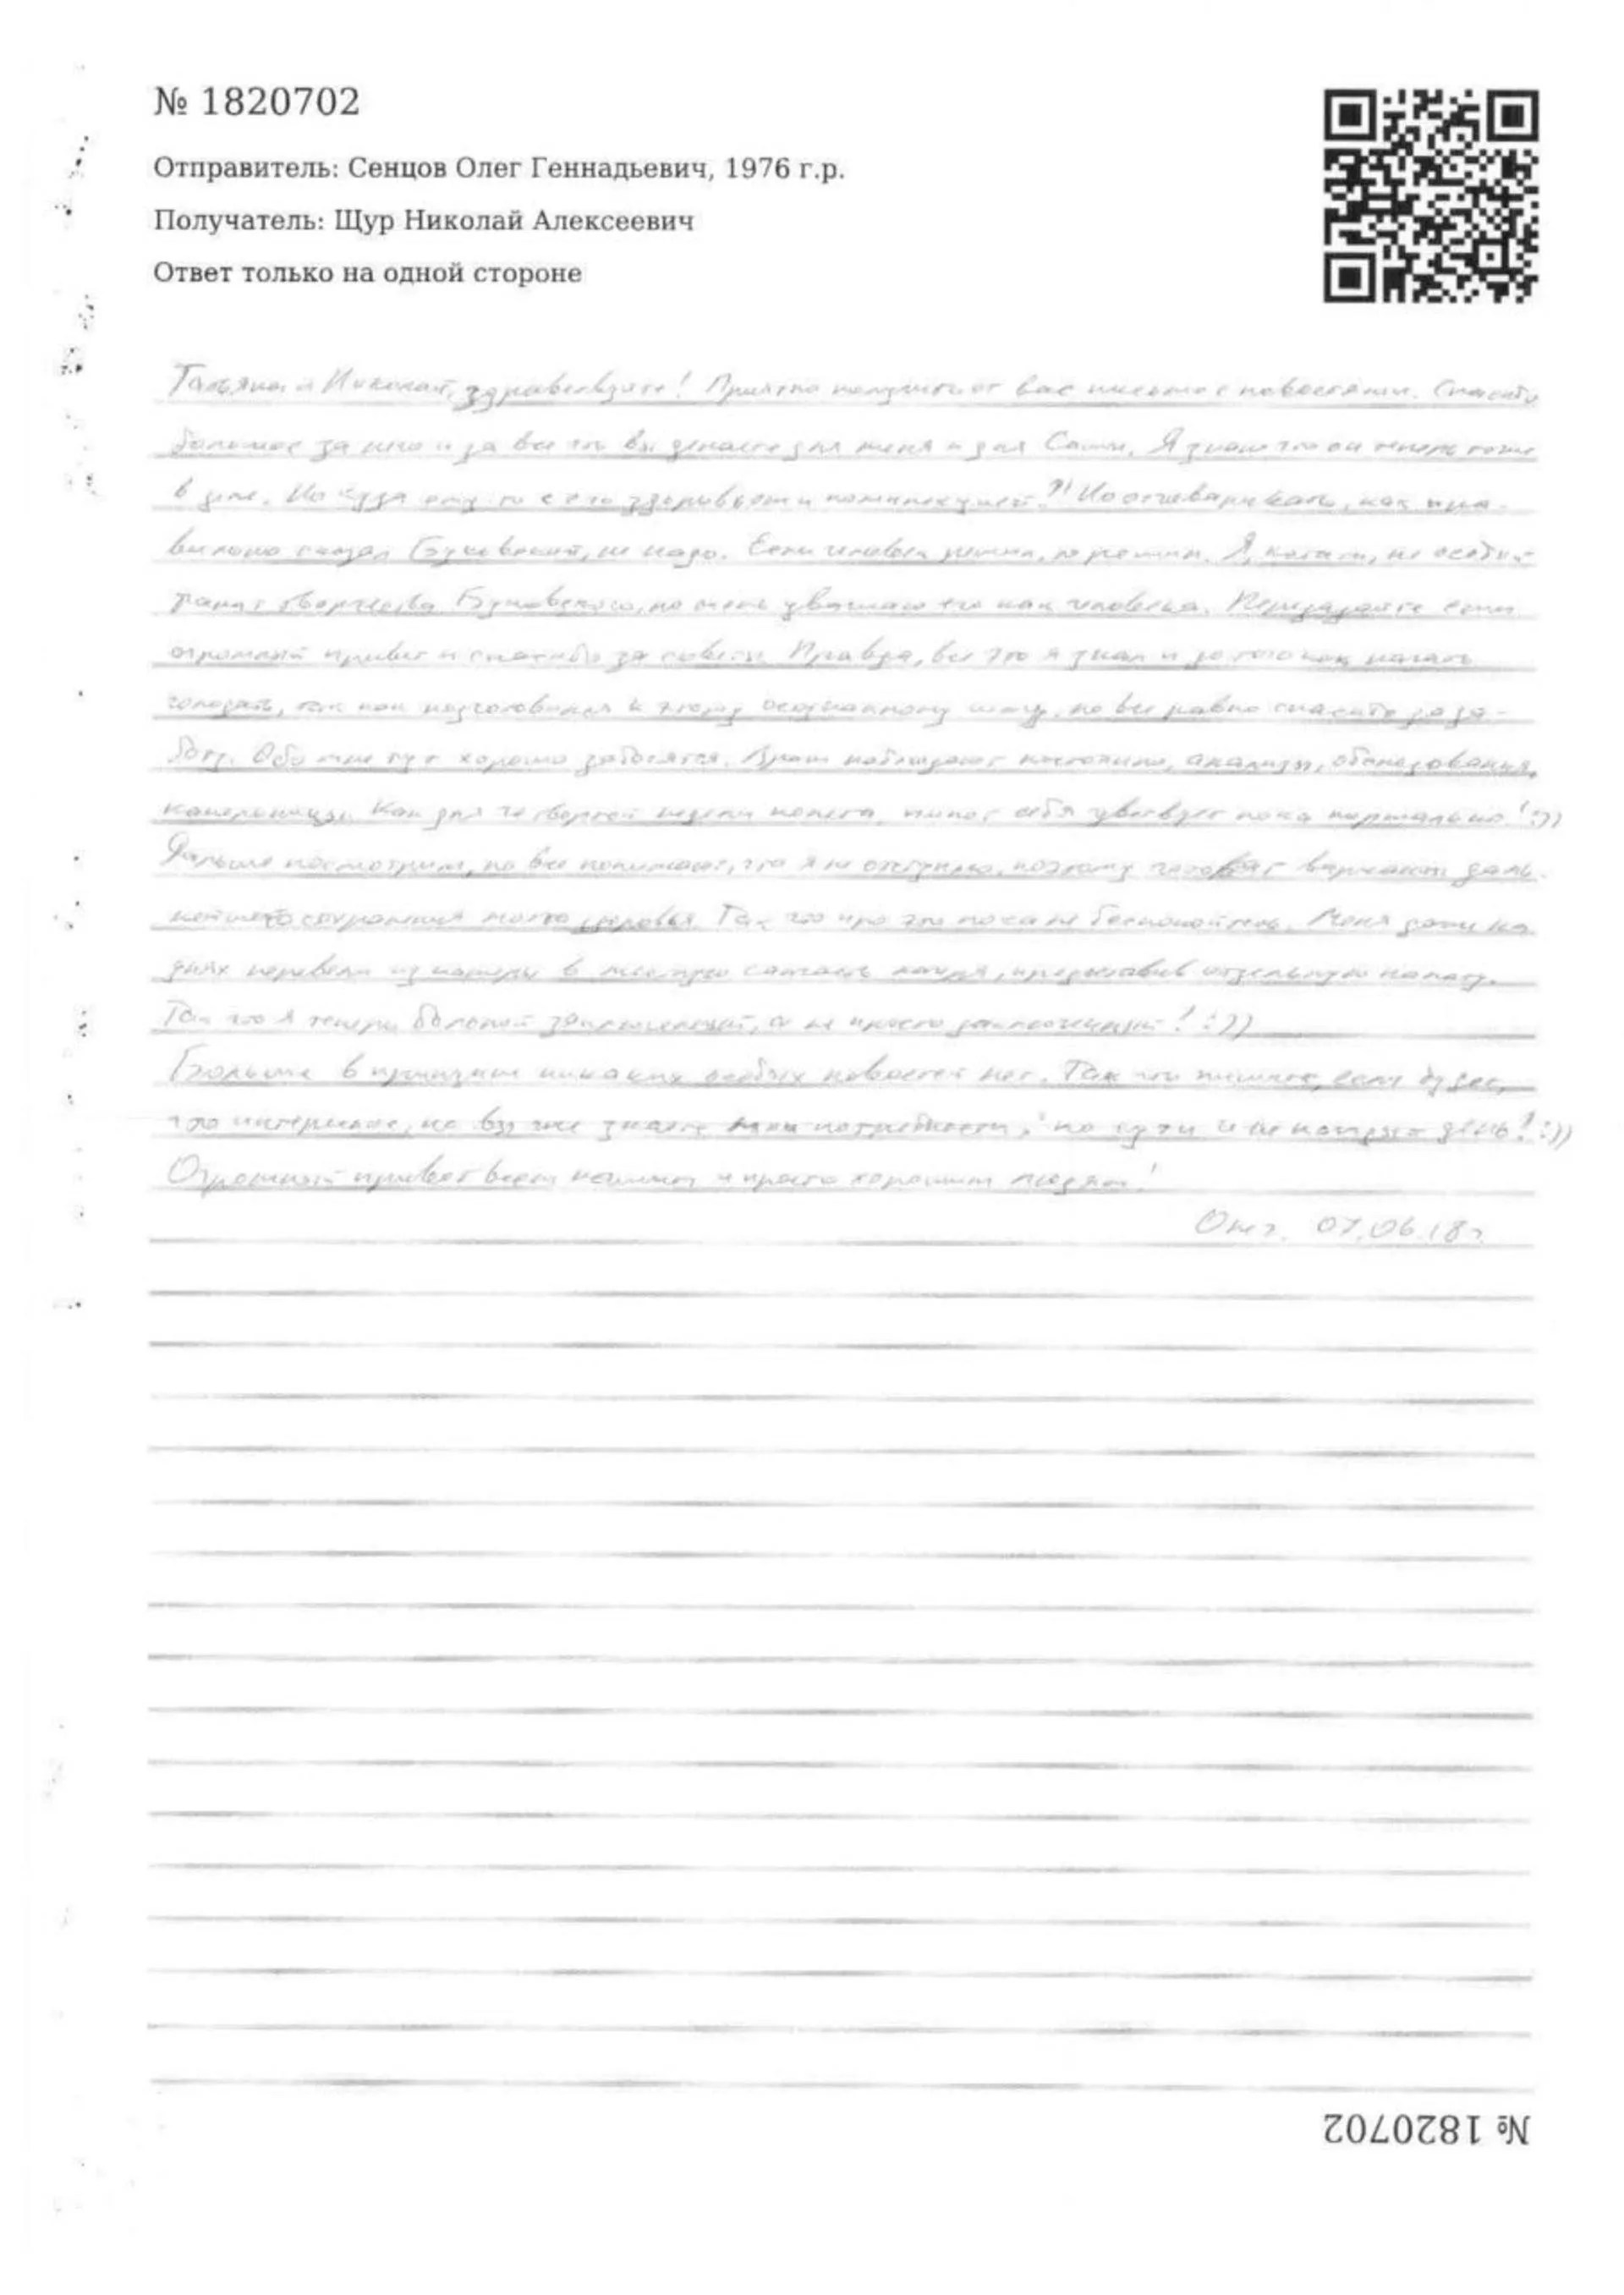 № 1820702
Отправитель: Сенцов Олег Геннадьевич, 1976 г.р.
Получатель: Щур Николай Алексеевич
Ответ только на одной стороне
Татьяна и Николай, здравствуйте! Приятно получить от вас письмо с новостями. Спасибо
большое за него и за все что вы делаете для меня и для Саши. Я знаю что он теперь тоже
в деле. Но куда ему-то с его здоровьем и комплекцией?! Но отговаривать, как пра-
вильно сказал Буковский, не надо. Если человек решил, то решил. Я, кстати, не особый
фанат творчества Буковского, но очень уважаю его как человека. Передадите если
огромный привет и спасибо за советы. Правда, все это я знал и до того как начать
голодать, так как подготовился к этому осознанному шагу, но все равно спасибо за за-
боту. Обо мне тут хорошо заботятся. Врачи наблюдают постоянно, анализы, обследования,
капельницы. Как для четвертой недели
себя чувствует пока нормально! :))
Дальше посмотрим, но все понимают, что я не отступлю, поэтому готовят варианты даль-
нейшего сохранения моего здоровья. Так что про это пока не беспокойтесь. Меня даже на
днях перевели из камеры в местную санчасть лагеря, предоставив отдельную палату.
Так что я теперь больной заключенный, а не просто заключенный! :))
Больше в принципе никаких особых новостей нет. Так что пишите, если будет,
что интересное, но вы же знаете мои потребности, по сути и не каждый день! :))
Огромный привет всем нашим и просто хорошим людям!
Олег. 07.06.18г.
№ 1820702